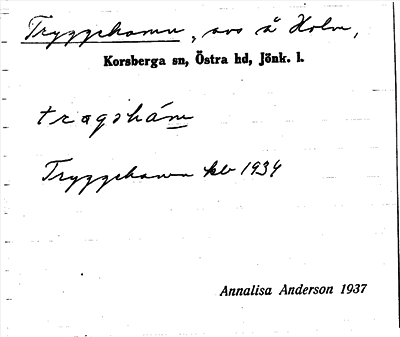 Tryggehamn, avs å Holm,
Korsberga sn, Östra hd, Jönk. l.
tragəhámn
Tryggehamn kb 1934
Annalisa Anderson 1937